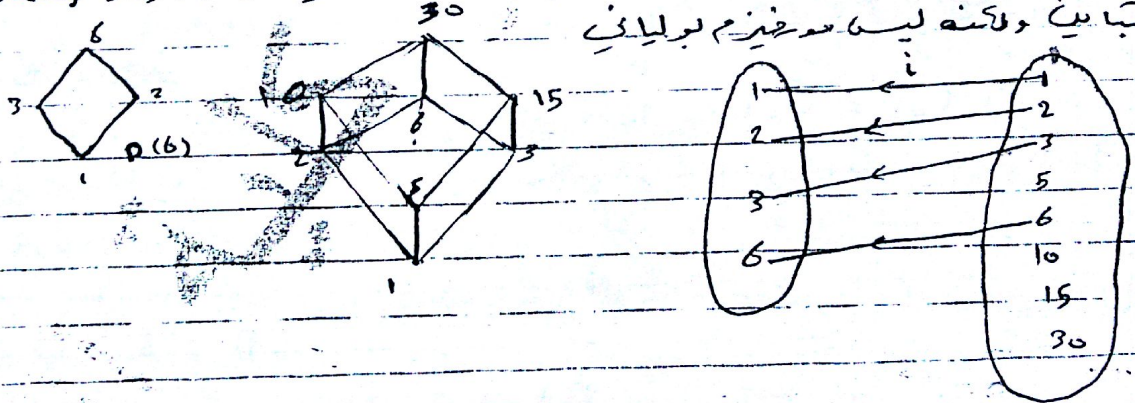 متباين ولكنه ليس مورفيزم بولياني
6
3
2
1
D(6)
30
10
15
6
2
3
5
1
i
1
2
3
6
1
2
3
5
6
10
15
30